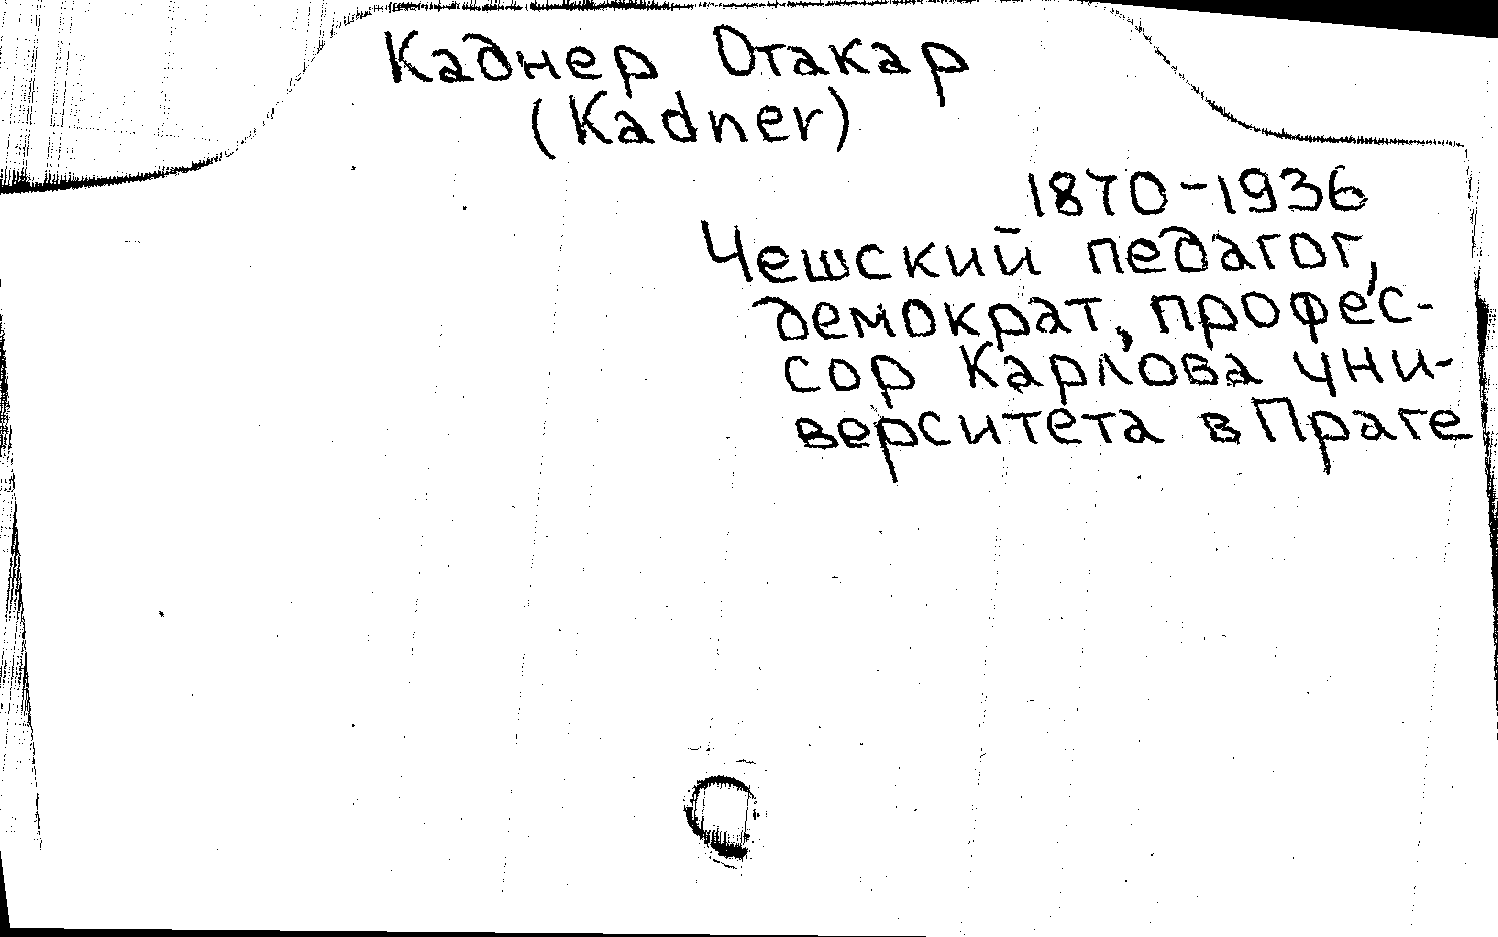 Каднер Отакар
(Kadner)
1870-1936
Чешский педагог,
демократ, профес-
сор Карлова уни-
верситета в Праге